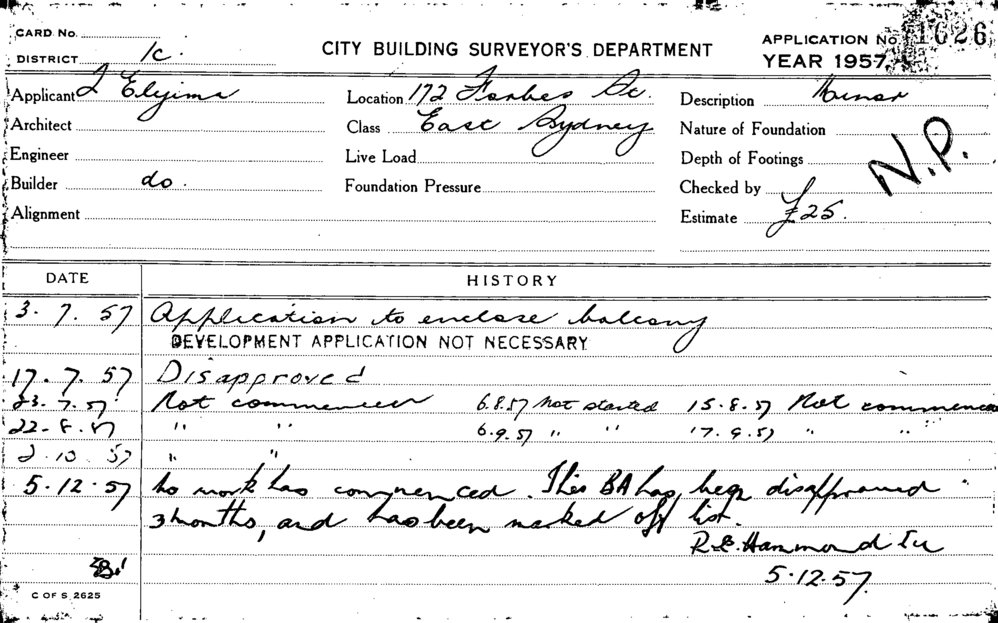 CARD No.
DISTRICT 1c.
CITY BUILDING SURVEYOR'S DEPARTMENT
APPLICATION No 1626
YEAR 1957
Applicant J Elyima
Location 172 Forbes St.
Description Minor
Architect
Class East Sydney
Nature of Foundation
Engineer
Live Load
Depth of Footings
N.P.
Builder do.
Foundation Pressure
Checked by
Alignment
Estimate £25.
DATE HISTORY
3. 7. 57 Application to enclose balcony
DEVELOPMENT APPLICATION NOT NECESSARY
17. 7. 57 Disapproved
23. 7. 57 Not commenced 6.8.57 Not started 15.8.57 Not commenced
22. 8. 57 " " 6.9.57 " " 17.9.57 " "
2.10.57 " "
5.12.57 No work has commenced. This BA has been disapproved
3 months, and has been marked off list.
R.E. Hammond
5.12.57
C OF S 2625